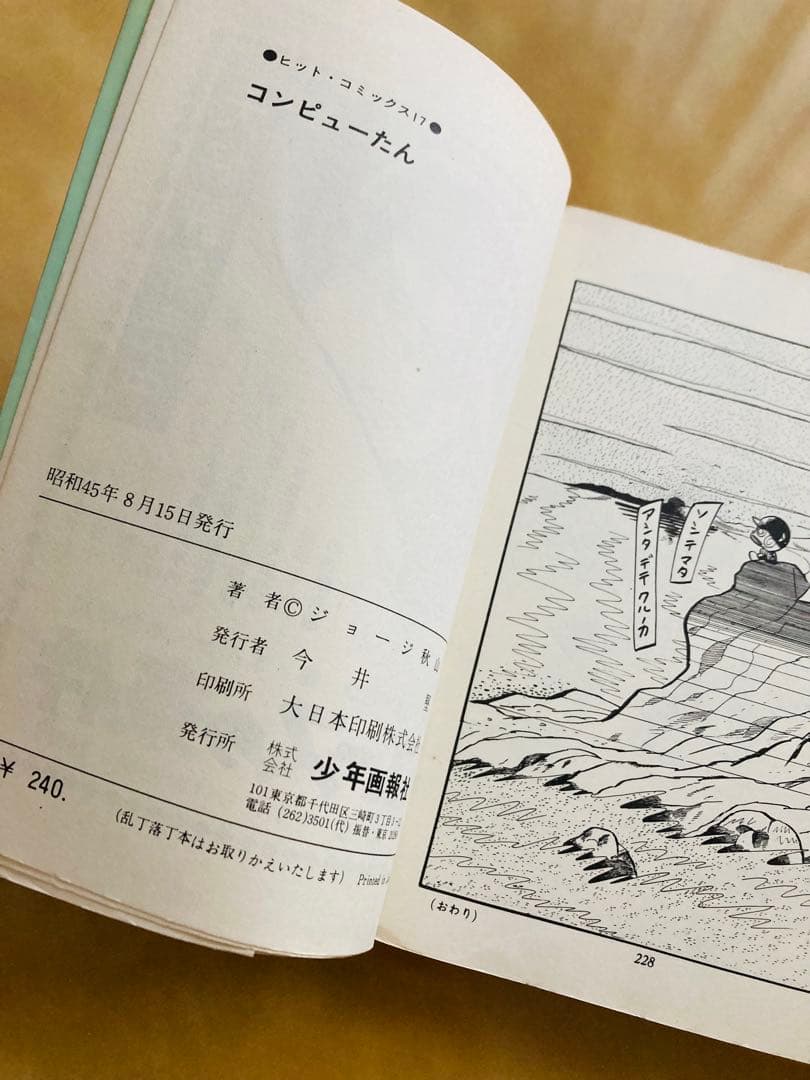 ●ヒット・コミックス17●
コンピューたん
昭和45年8月15日発行
著者©ジョージ秋山
発行者 今井
印刷所 大日本印刷株式会
発行所 株式会社 少年画報社
101東京都千代田区三崎町3丁目
電話 (262)3501(代) 振替・東京
¥ 240.
(乱丁落丁本はお取りかえいたします) Printed in
ソシテマタ
アシタデテクルノカ
(おわり)
228